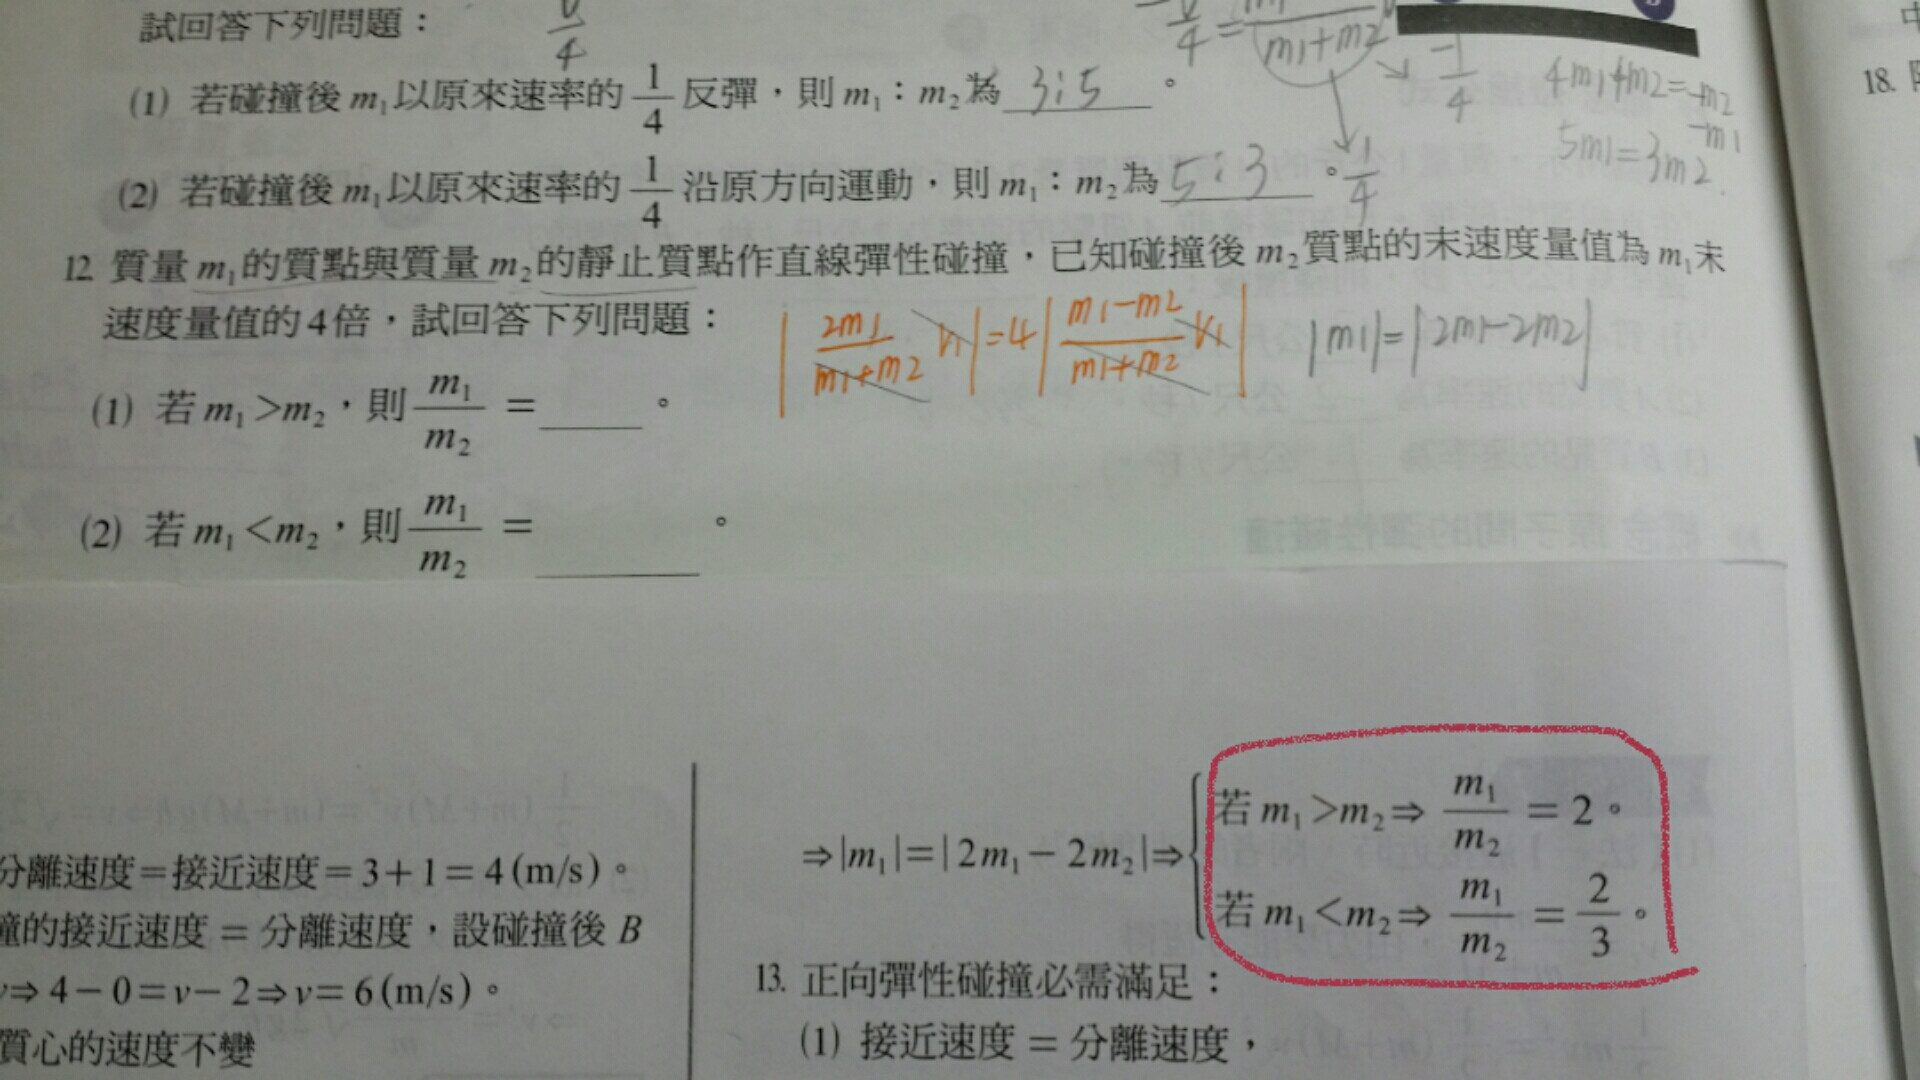 試回答下列問題：
v/4
(1) 若碰撞後 m₁以原來速率的 1/4 反彈，則 m₁：m₂為 3:5 。
m1+m2
-1/4
4m1+m2=-m2
-m1
5m1=3m2
(2) 若碰撞後 m₁以原來速率的 1/4 沿原方向運動，則 m₁：m₂為 5:3 。
1/4
12. 質量 m₁的質點與質量 m₂的靜止質點作直線彈性碰撞，已知碰撞後 m₂質點的末速度量值為 m₁末
速度量值的 4倍，試回答下列問題：
|2m1/(m1+m2) V1|=4|(m1-m2)/(m1+m2) V1|
|m1|=|2m1-2m2|
(1) 若 m₁>m₂，則 m₁/m₂ =____。
(2) 若 m₁<m₂，則 m₁/m₂ =____。
分離速度＝接近速度＝3+1＝4(m/s)。
撞的接近速度 = 分離速度，設碰撞後 B
⇒4−0=v−2⇒v=6(m/s)。
質心的速度不變
⇒|m₁|=|2m₁−2m₂|⇒
若 m₁>m₂⇒ m₁/m₂ =2。
若 m₁<m₂⇒ m₁/m₂ = 2/3。
13. 正向彈性碰撞必需滿足：
(1) 接近速度 = 分離速度，
18.